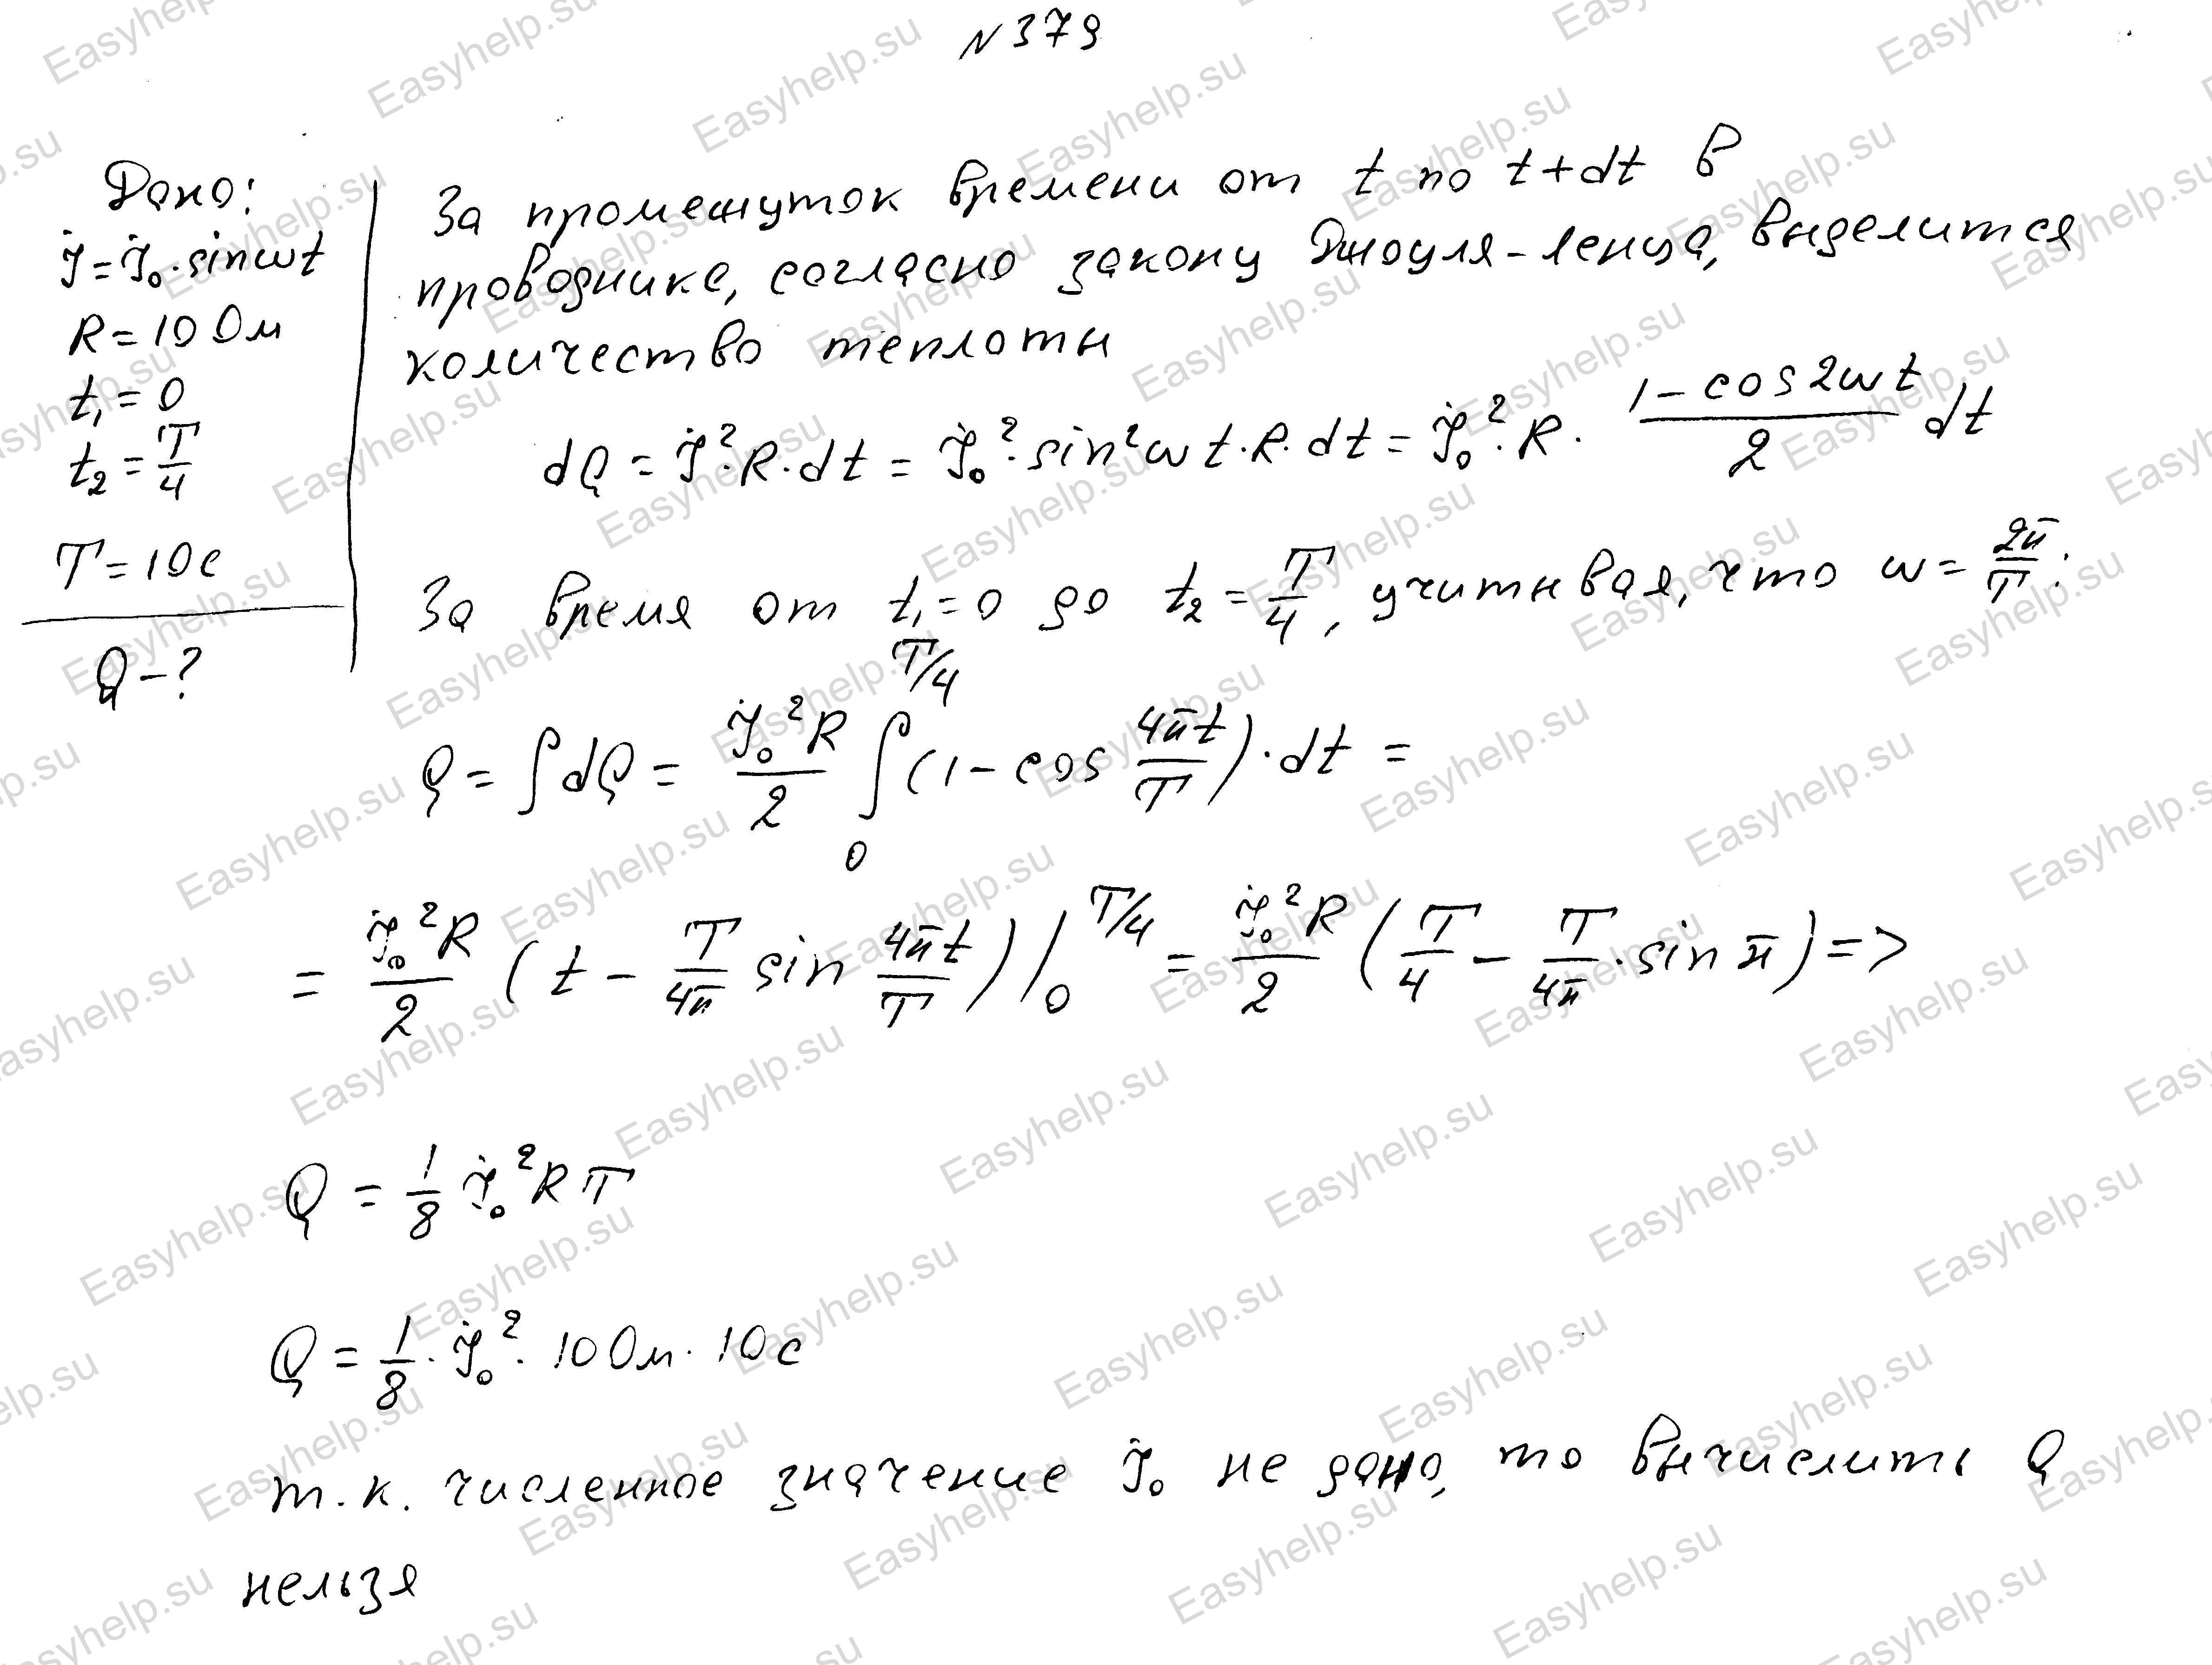 N 379
Дано:
I = I₀·sinωt
R = 10 Ом
t₁ = 0
t₂ = T/4
T = 10с
Q – ?
За промежуток времени от t по t+dt в
проводнике, согласно закону Джоуля-Ленца, выделится
количество теплоты
dQ = I²·R·dt = I₀²·sin²ωt·R·dt = I₀²·R· (1 – cos2ωt)/2 dt
За время от t₁=0 до t₂ = T/4, учитывая, что ω = 2π/T:
Q = ∫dQ = I₀²R/2 ∫₀^(T/4) (1 – cos 4πt/T)·dt =
= I₀²R/2 (t – T/4π sin 4πt/T) |₀^(T/4) = I₀²R/2 (T/4 – T/4π · sin π) =>
Q = 1/8 I₀²RT
Q = 1/8 · I₀² · 10 Ом · 10с
т.к. численное значение I₀ не дано, то вычислить Q
нельзя
Easyhelp.su